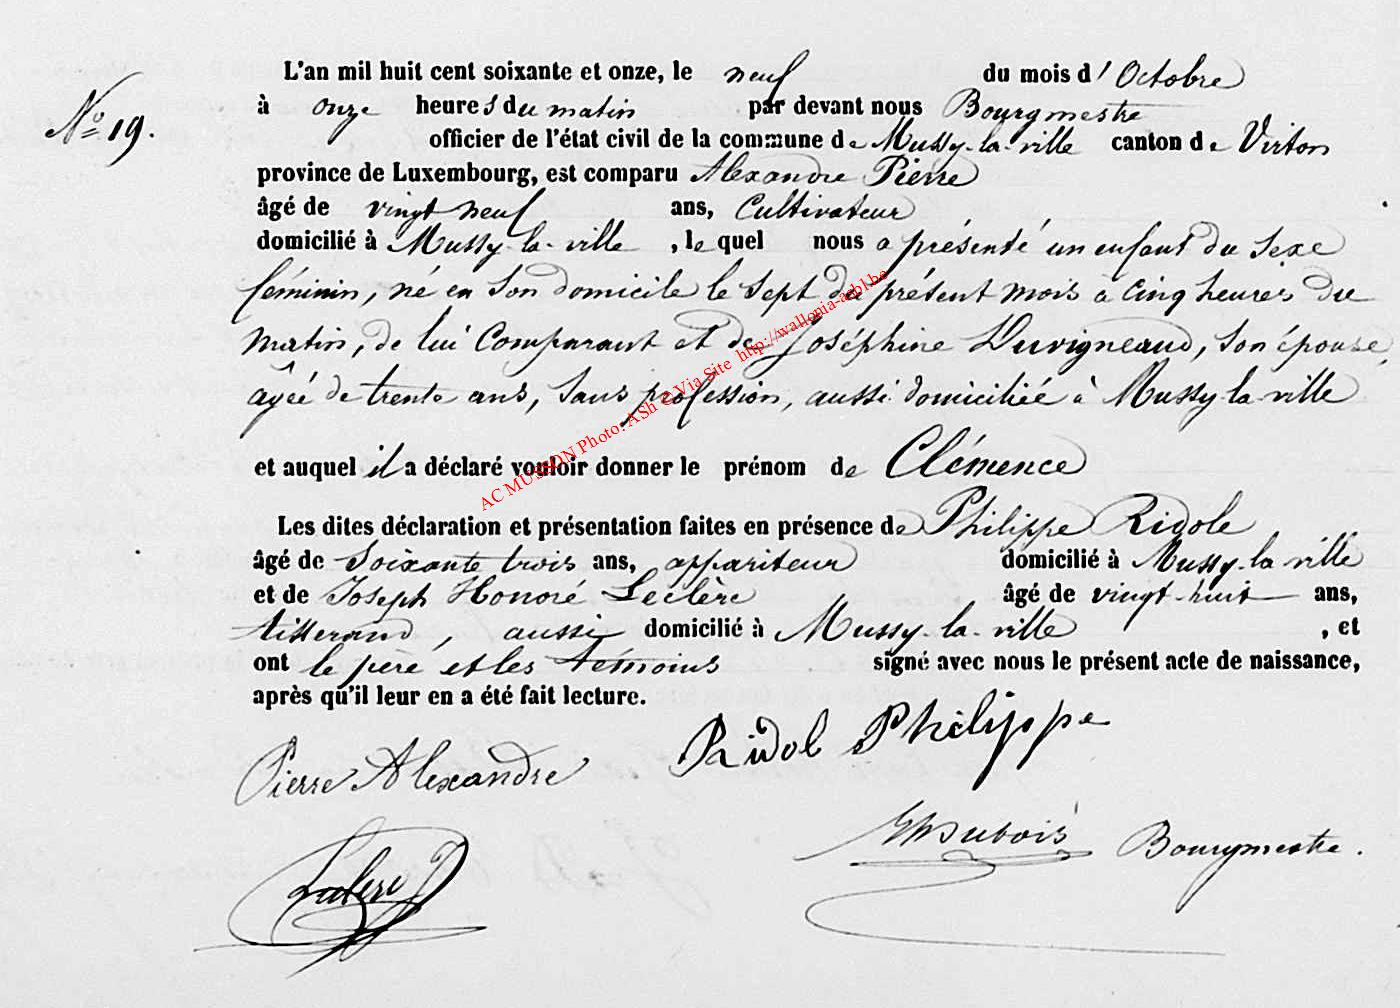 L'an mil huit cent soixante et onze, le neuf du mois d'Octobre
No 19.
à onze heures du matin par devant nous Bourgmestre
officier de l'état civil de la commune de Mussy-la-ville canton de Virton
province de Luxembourg, est comparu Alexandre Pierre
âgé de vingt neuf ans, Cultivateur
domicilié à Mussy-la-ville, lequel nous a présenté un enfant du sexe
féminin, né en son domicile le sept du présent mois à cinq heures du
matin, de lui Comparant et de Joséphine Duvigneaud, son épouse,
agée de trente ans, sans profession, aussi domiciliée à Mussy-la-ville
AC MUSSON Photo: ASh © Via Site http://wallonia-asbl.be
et auquel il a déclaré vouloir donner le prénom de Clémence
Les dites déclaration et présentation faites en présence de Philippe Ridole
âgé de soixante trois ans, appariteur domicilié à Mussy-la ville
et de Joseph Honoré Leclère âgé de vingt-huit ans,
tisserand, aussi domicilié à Mussy-la-ville, et
ont le père et les témoins signé avec nous le présent acte de naissance,
après qu'il leur en a été fait lecture.
Ridol Philippe
Pierre Alexandre
Dubois Bourgmestre.